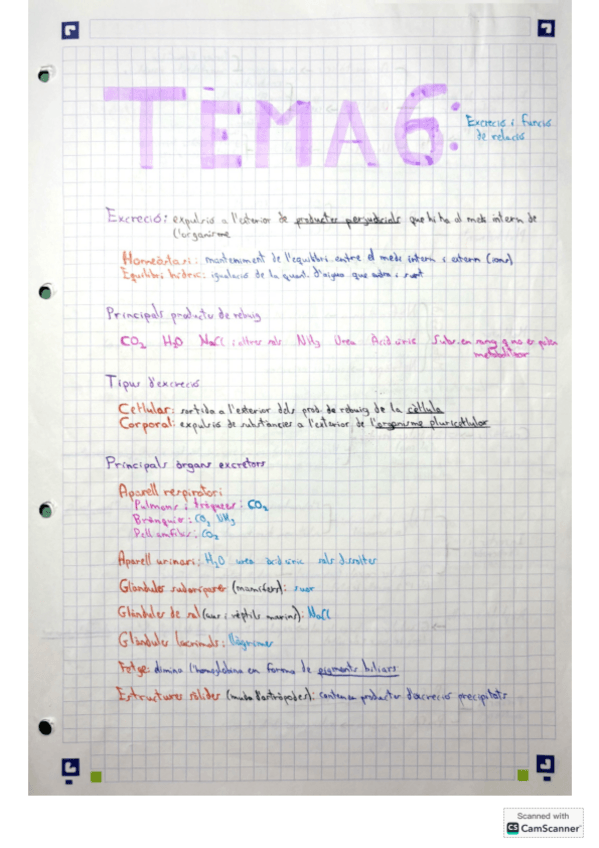 TÈMA 6:
Excreció i funció
de relació
Excreció: expulsió a l'exterior de productes perjudicials que hi ha al medi intern de
l'organisme
Homeòstasi: manteniment de l'equilibri entre el medi intern i extern (ions)
Equilibri hídric: igualació de la quant. d'aigua que entra i surt
Principals productes de rebuig
CO2 H2O NaCl i altres sals NH3 Urea Àcid úric Subs. en sang q no es poden
metabolitzar
Tipus d'excreció
Cel·lular: sortida a l'exterior dels prod. de rebuig de la cèl·lula
Corporal: expulsió de substàncies a l'exterior de l'organisme pluricel·lular
Principals òrgans excretors
Aparell respiratori:
Pulmons i tràquees: CO2
Brànquies: CO2 NH3
Pell amfibis: CO2
Aparell urinari: H2O urea àcid úric sals dissoltes
Glàndules sudorípares (mamífers): suor
Glàndules de sal (aus i rèptils marins): NaCl
Glàndules lacrimals: llàgrimes
Fetge: elimina l'hemoglobina en forma de pigments biliars
Estructures sòlides (muda d'artròpodes): contenen productes d'excreció precipitats
Scanned with
CS CamScanner